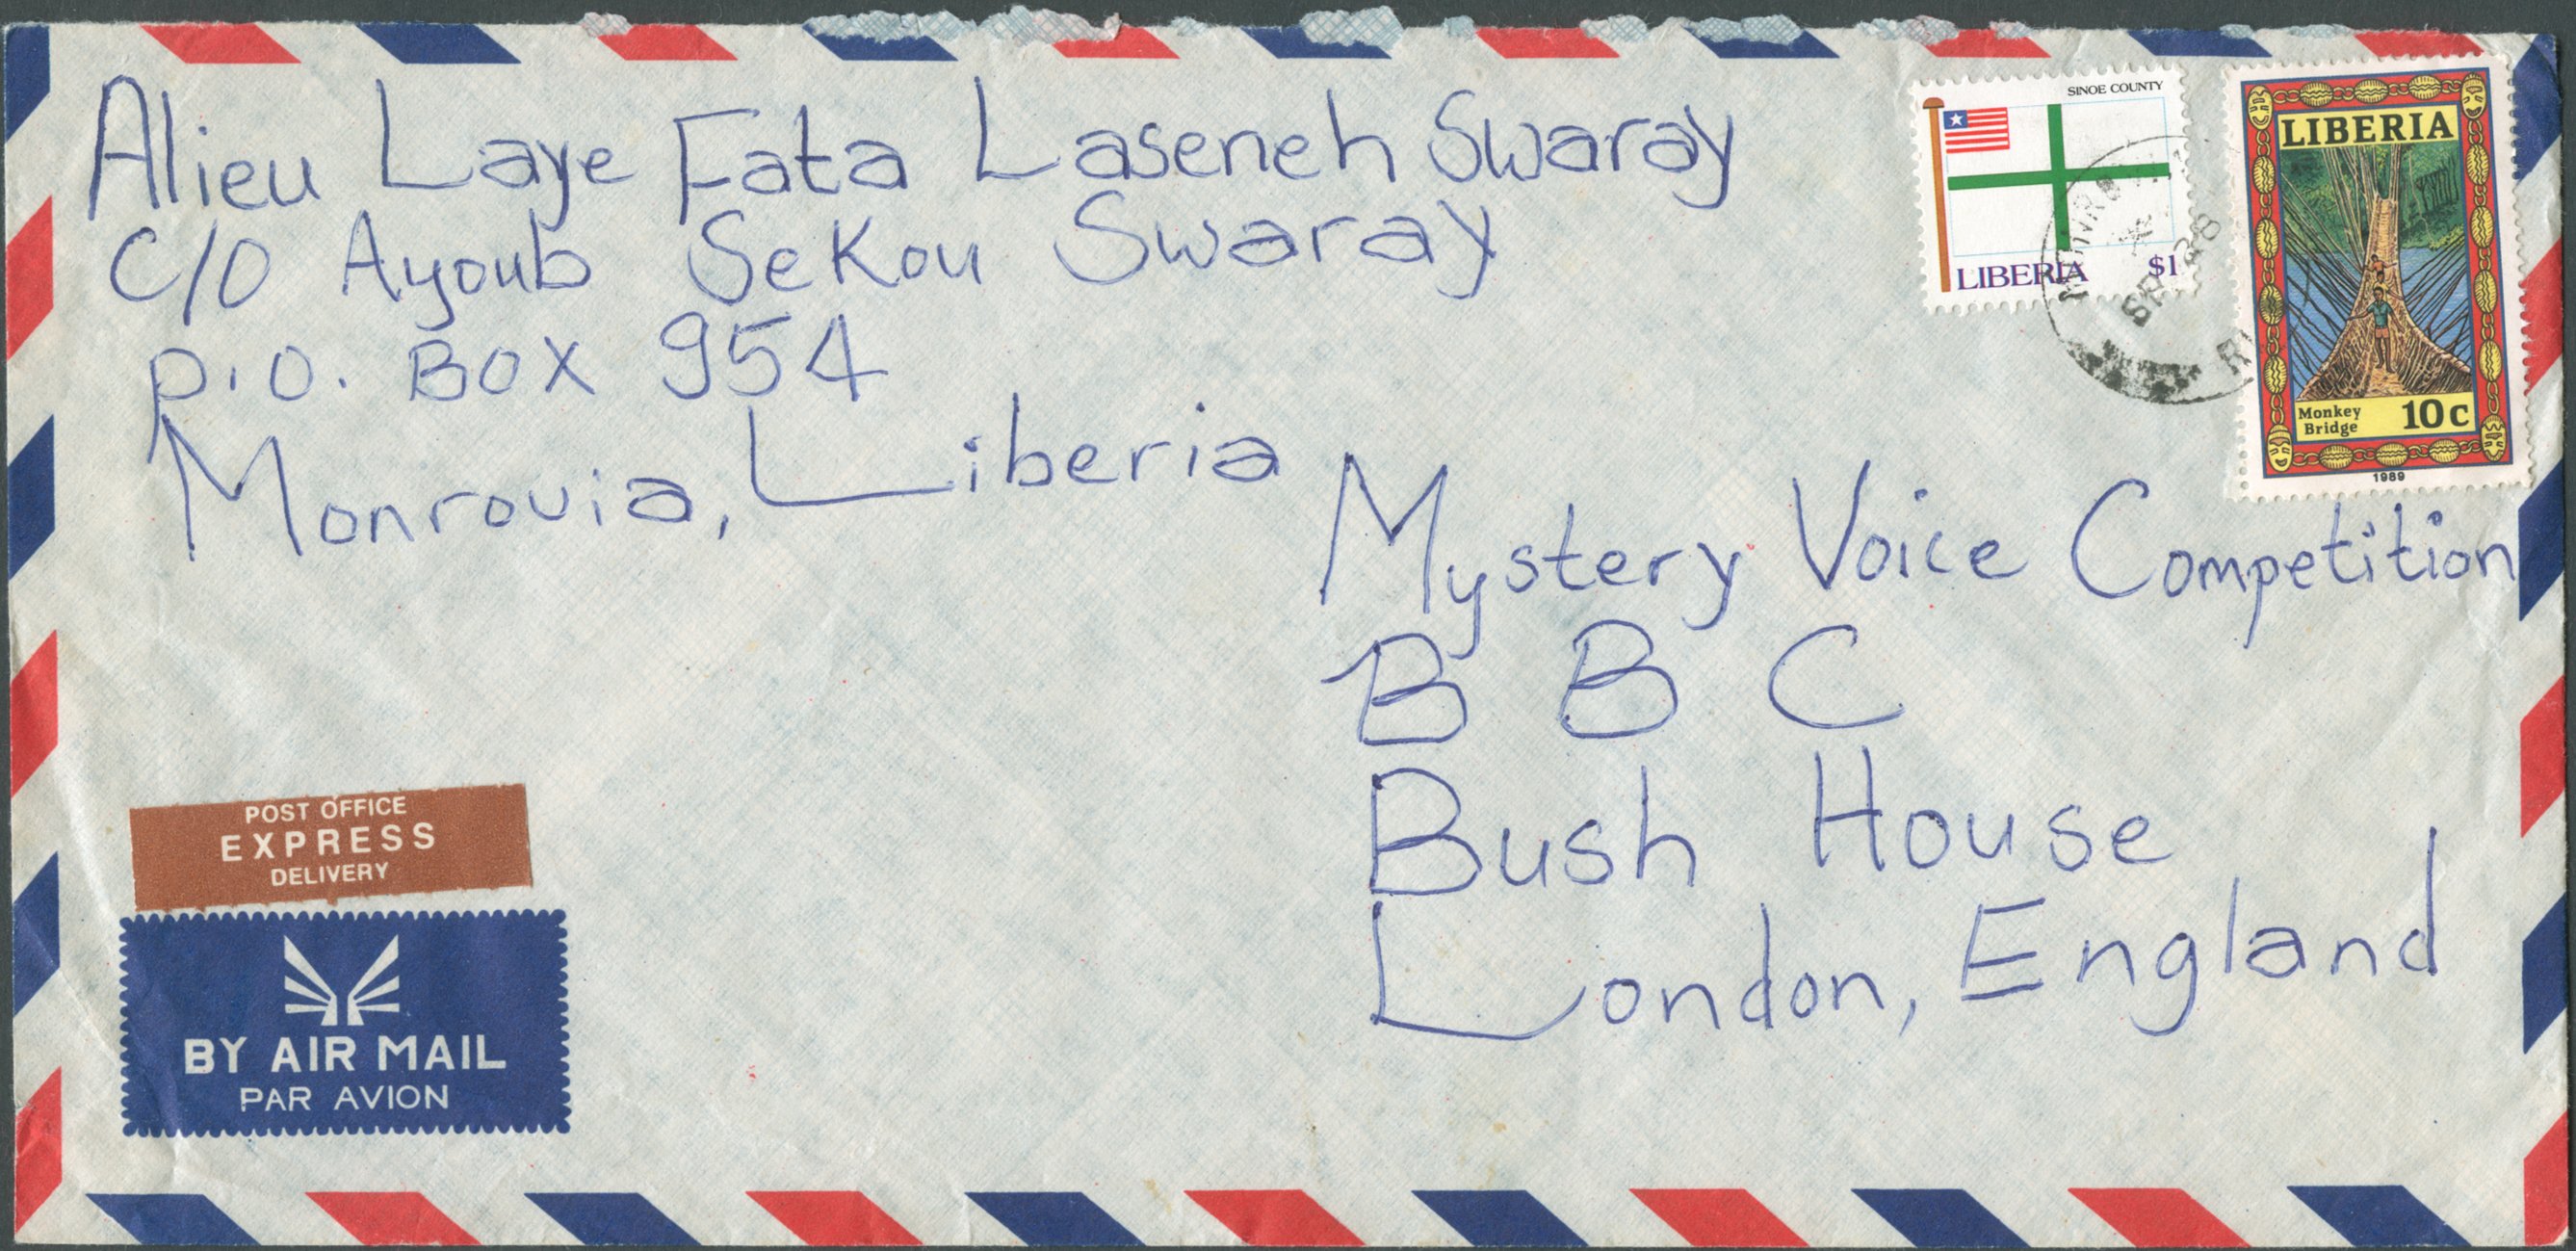 Alieu Laye Fata Laseneh Swaray
C/O Ayoub Sekou Swaray
P.O. BOX 954
Monrovia, Liberia
SINOE COUNTY
LIBERIA $1
LIBERIA
Monkey
Bridge
10c
1989
Mystery Voice Competition
B B C
Bush House
London, England
POST OFFICE
EXPRESS
DELIVERY
BY AIR MAIL
PAR AVION